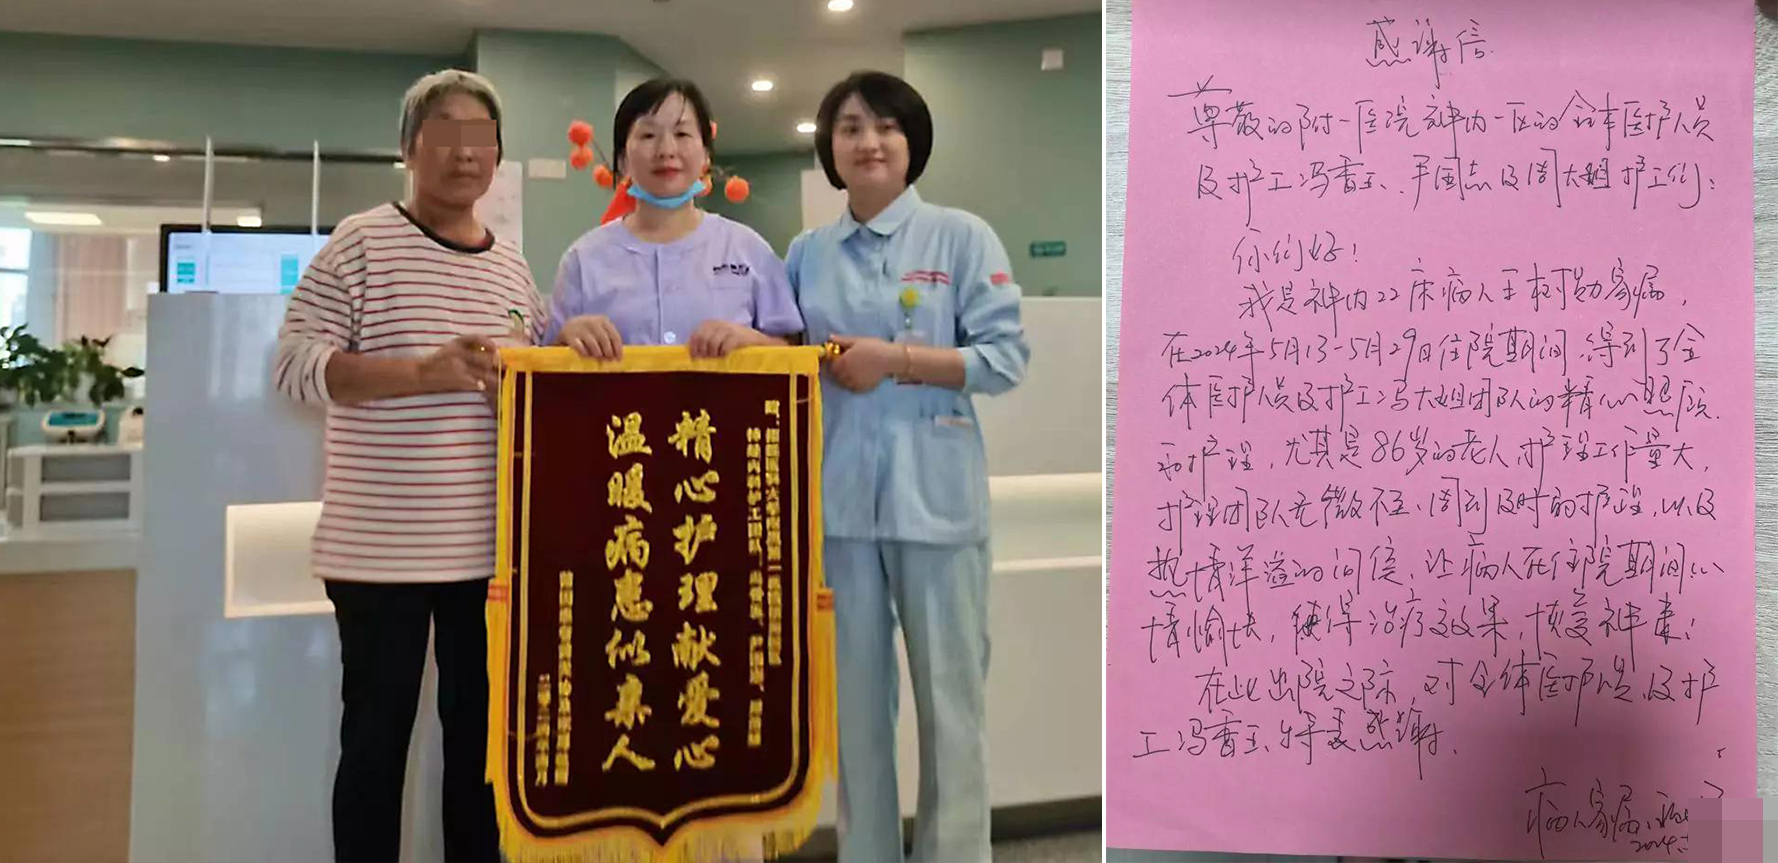 精心护理献爱心
温暖病患似亲人
感谢信
尊敬的附一医院神内一区的全体医护人员
及护工冯香玉、平国志及周大姐护工们:
你们好!
我是神内22床病人王树勋家属,
在2024年5月13-5月29日住院期间,得到了全
体医护人员及护工冯大姐团队的精心照顾
和护理,尤其是86岁的老人,护理工作量大,
护理团队无微不至、周到及时的护理,以及
热情洋溢的问候,让病人在住院期间心
情愉快,使得治疗效果,恢复神速!
在此出院之际,对全体医护人员及护
工冯香玉、特表感谢.
病人家属
2024